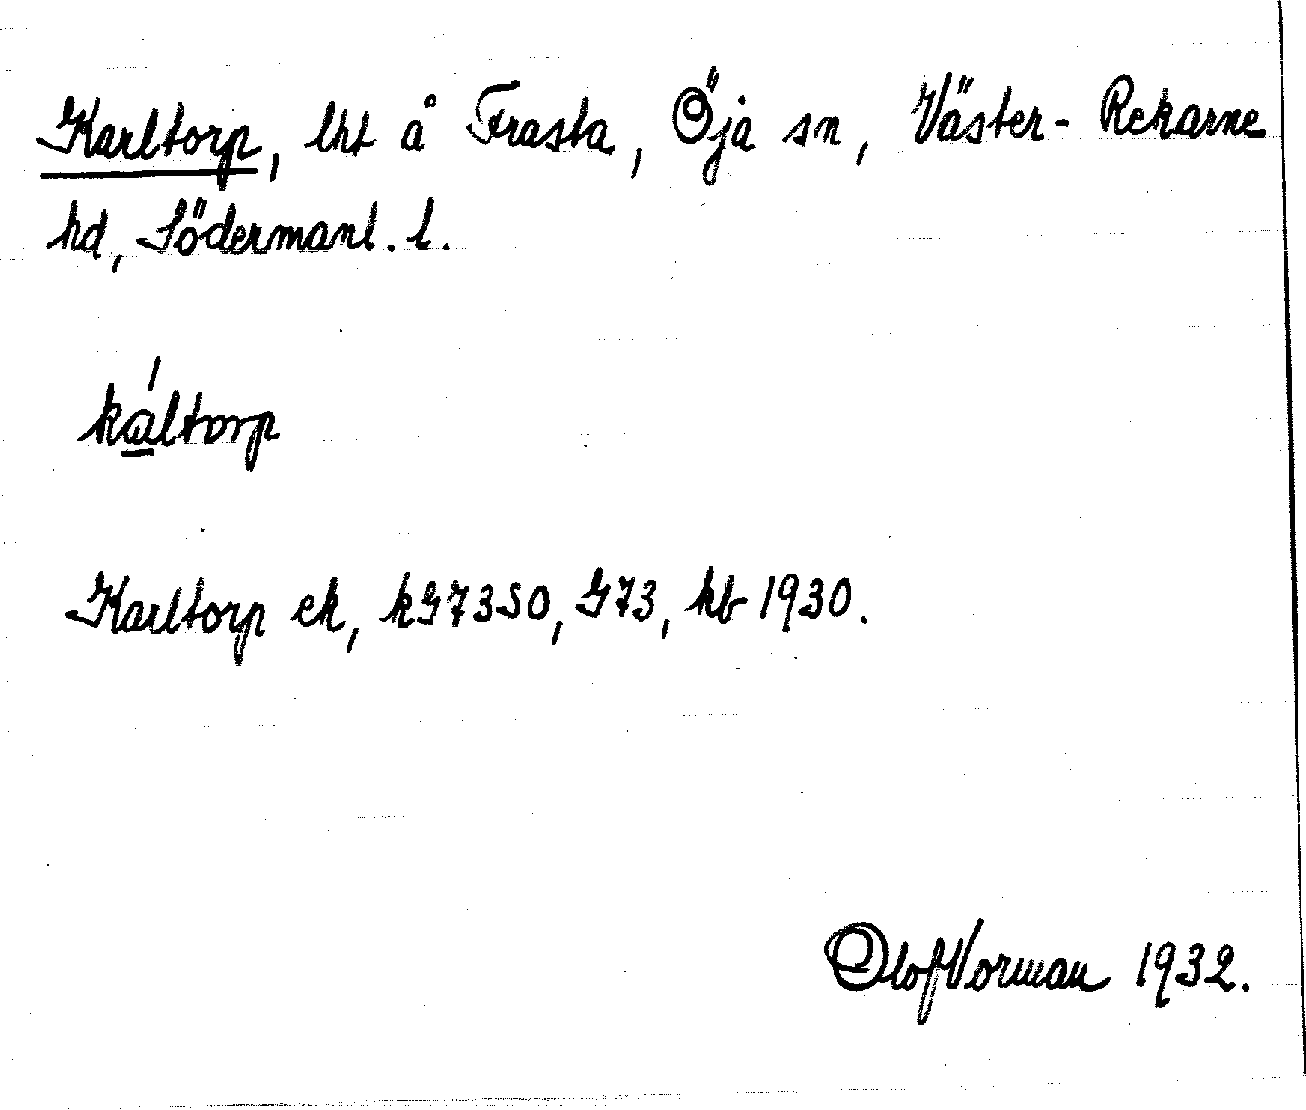 Karltorp, lht å Frasta, Öja sn, Väster-Rekarne
hd, Södermanl. l.
káltorp
Karltorp ek, kG73SO, G73, kb 1930.
Olof Vorman 1932.